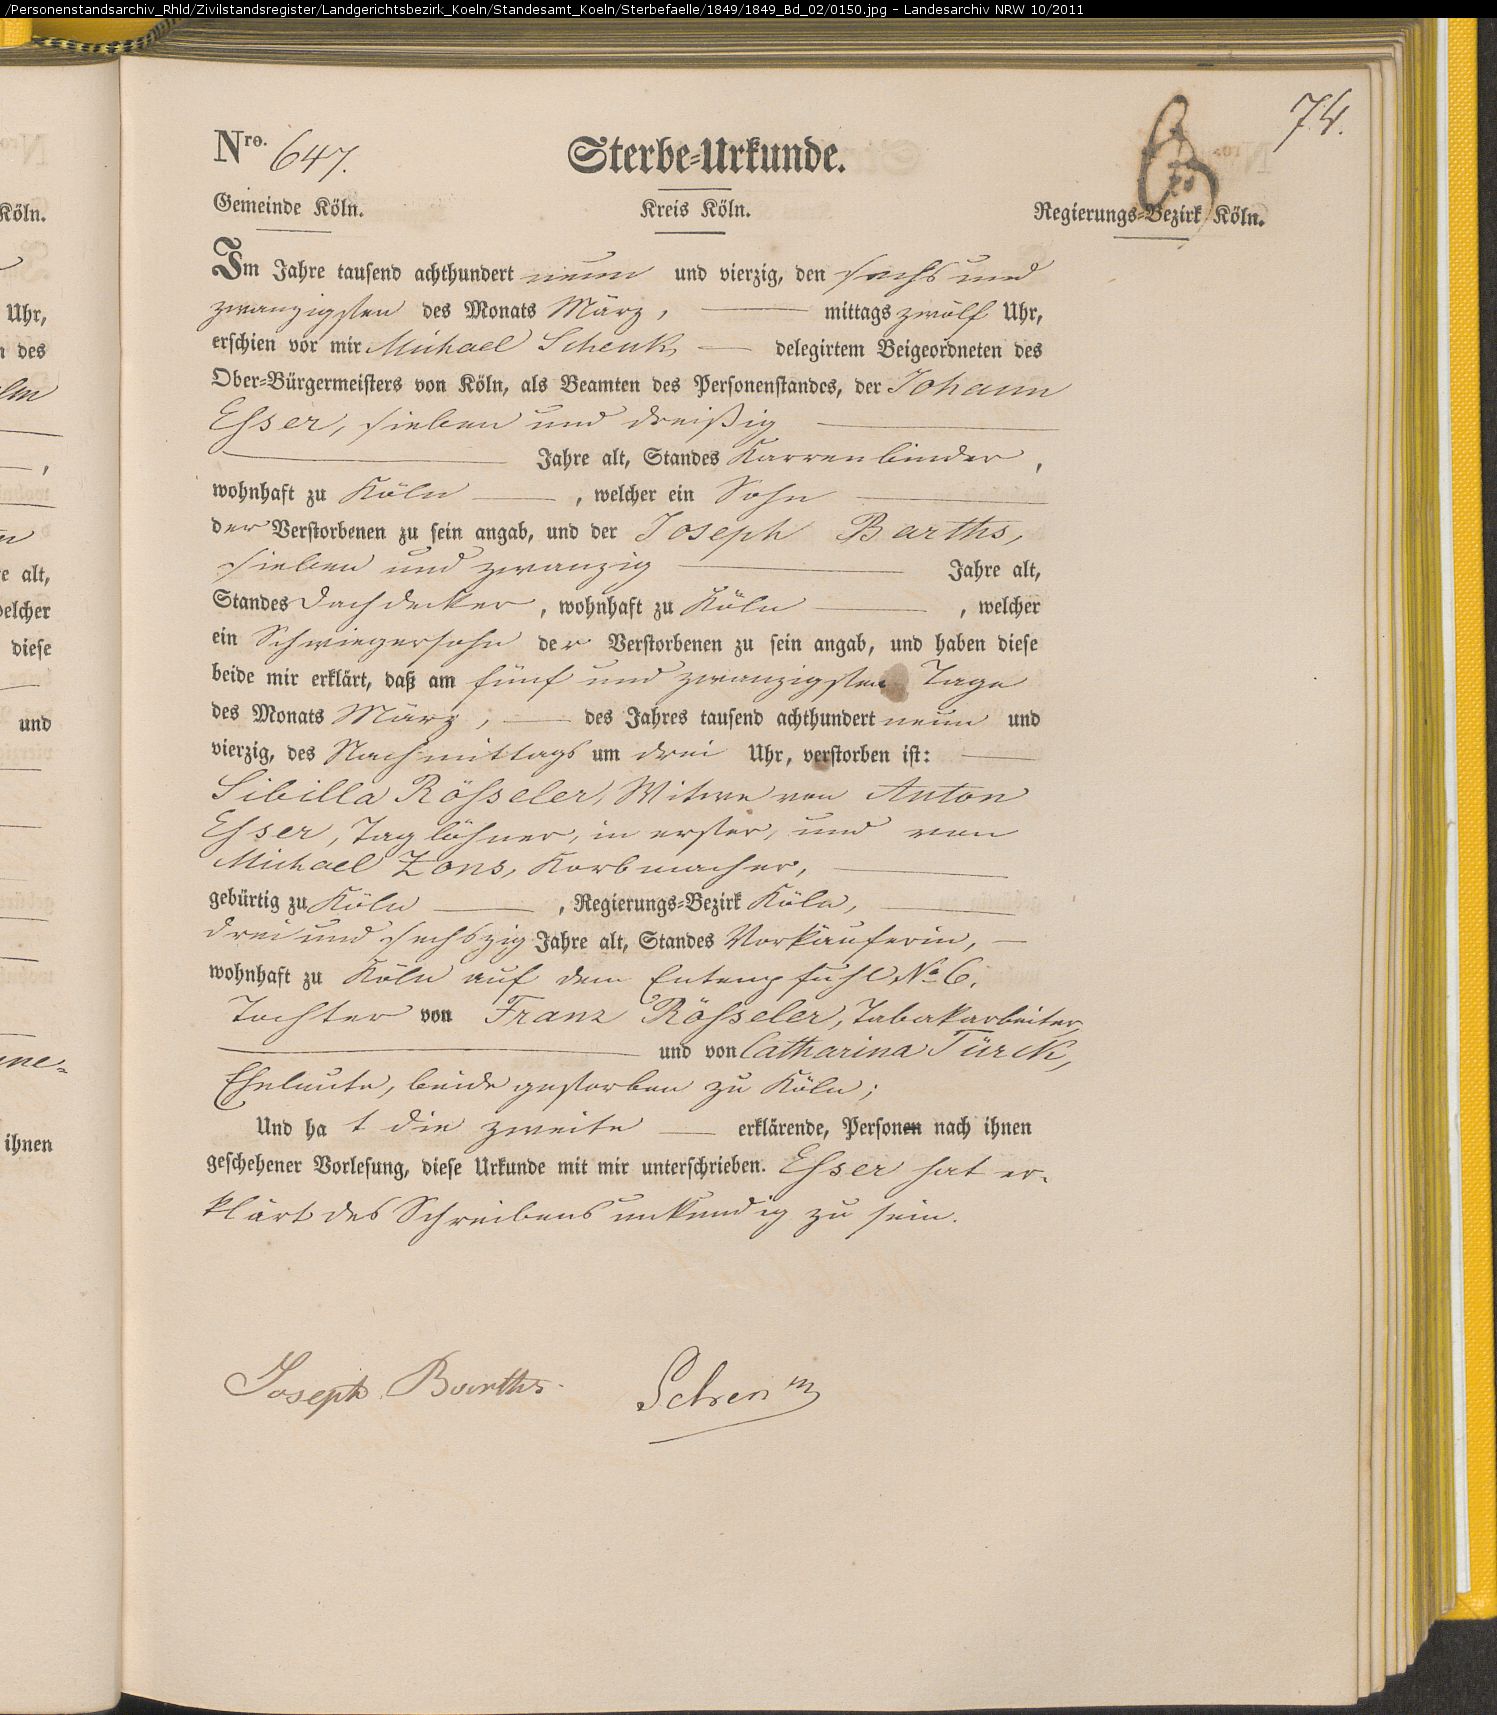 /Personenstandsarchiv_Rhld/Zivilstandsregister/Landgerichtsbezirk_Koeln/Standesamt_Koeln/Sterbefaelle/1849/1849_Bd_02/0150.jpg - Landesarchiv NRW 10/2011
74.
Nro. 647. Sterbe-Urkunde.
Gemeinde Köln. Kreis Köln. Regierungs-Bezirk Köln.
Im Jahre tausend achthundert neun und vierzig, den sechs und
zwanzigsten des Monats März, mittags zwölf Uhr,
erschien vor mir Michael Schenk delegirtem Beigeordneten des
Ober-Bürgermeisters von Köln, als Beamten des Personenstandes, der Johann
Esser, sieben und dreißig
Jahre alt, Standes Karrenbinder,
wohnhaft zu Köln, welcher ein Sohn
der Verstorbenen zu sein angab, und der Joseph Barths,
sieben und zwanzig Jahre alt,
Standes Dachdecker, wohnhaft zu Köln, welcher
ein Schwiegersohn der Verstorbenen zu sein angab, und haben diese
beide mir erklärt, daß am fünf und zwanzigsten Tage
des Monats März, des Jahres tausend achthundert neun und
vierzig, des Nachmittags um drei Uhr, verstorben ist:
Sibilla Rösseler, Witwe von Anton
Esser, Taglöhner, in erster, und von
Michael Zons, Korbmacher,
gebürtig zu Köln, Regierungs-Bezirk Köln,
drei und sechszig Jahre alt, Standes Vorkäuferin,
wohnhaft zu Köln auf dem Entenpfuhl No 6.
Tochter von Franz Rösseler, Tabakarbeiter,
und von Catharina Türck,
Eheleute, beide gestorben zu Köln;
Und ha t die zweite erklärende, Personen nach ihnen
geschehener Vorlesung, diese Urkunde mit mir unterschrieben. Esser hat er-
klärt des Schreibens unkundig zu sein.
Joseph Barths. Schenk
Köln.
Uhr,
des
e alt,
welcher
diese
und
ihnen